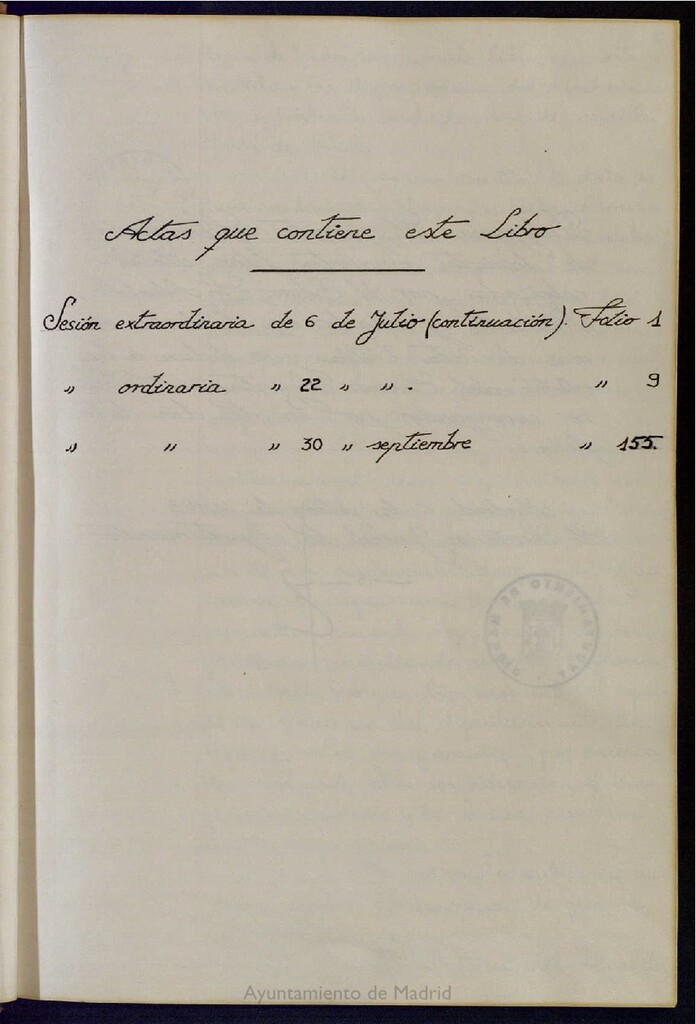 Actas que contiene este Libro
Sesión extraordinaria de 6 de Julio (continuación). Folio 1
" ordinaria " 22 " ". " 9
" " " 30 " septiembre " 155.
Ayuntamiento de Madrid